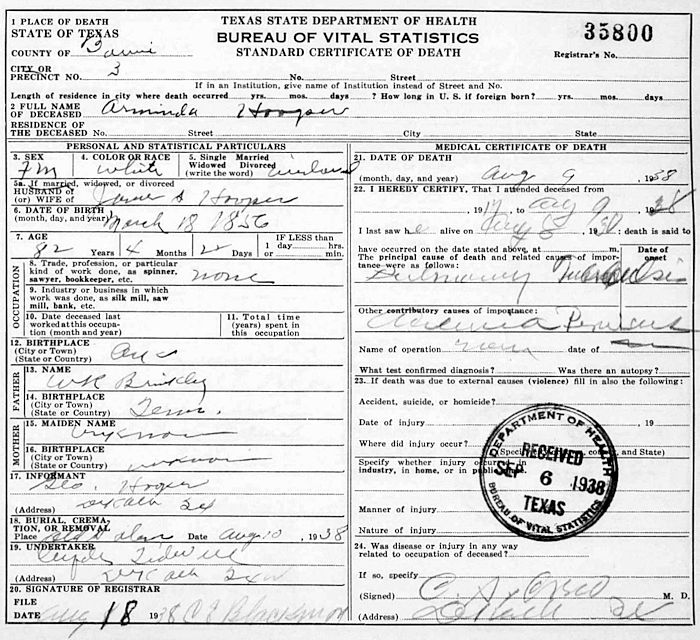 1 PLACE OF DEATH
STATE OF TEXAS
COUNTY OF Bowie
CITY OR
PRECINCT NO. 3 No. Street
TEXAS STATE DEPARTMENT OF HEALTH
BUREAU OF VITAL STATISTICS
STANDARD CERTIFICATE OF DEATH
35800
Registrar's No.
If in an Institution, give name of Institution instead of Street and No.
Length of residence in city where death occurred yrs. mos. days ? How long in U. S. if foreign born? yrs. mos. days
2 FULL NAME
OF DECEASED Arminda Hooper
RESIDENCE OF
THE DECEASED No. Street City State
PERSONAL AND STATISTICAL PARTICULARS
3. SEX 4. COLOR OR RACE 5. Single Married
Widowed Divorced
(write the word)
Fm white widowed
5a. If married, widowed, or divorced
HUSBAND OF
(or) WIFE OF Hooper
6. DATE OF BIRTH
(month, day, and year) March 18 1856
7. AGE IF LESS than
1 day
82 Years 4 Months 22 Days hrs. min.
OCCUPATION
8. Trade, profession, or particular
kind of work done, as spinner,
sawyer, bookkeeper, etc. none
9. Industry or business in which
work was done, as silk mill, saw
mill, bank, etc.
10. Date deceased last
worked at this occupation
(month and year)
11. Total time
(years) spent in
this occupation
12. BIRTHPLACE
(City or Town)
(State or Country) Ark
FATHER
13. NAME
WR Brinkley
14. BIRTHPLACE
(City or Town)
(State or Country) Tenn.
MOTHER
15. MAIDEN NAME
unknown
16. BIRTHPLACE
(City or Town)
(State or Country) unknown
17. INFORMANT
Geo. Hooper
(Address) DeKalb Tex
18. BURIAL, CREMATION, OR REMOVAL
Place Date Aug 10, 1938
19. UNDERTAKER
Tidwell
(Address) DeKalb Tex
20. SIGNATURE OF REGISTRAR
FILE
DATE Aug 18 1938
MEDICAL CERTIFICATE OF DEATH
21. DATE OF DEATH
(month, day, and year) Aug 9 1938
22. I HEREBY CERTIFY, That I attended deceased from
19 Aug 9 1938
I last saw h alive on Aug 8 19 death is said to
have occurred on the date stated above, at m.
The principal cause of death and related causes of importance were as follows:
Date of
onset
Pulmonary Tuberculosis
Other contributory causes of importance:
Name of operation date of
What test confirmed diagnosis? Was there an autopsy?
23. If death was due to external causes (violence) fill in also the following:
Accident, suicide, or homicide?
Date of injury , 19
Where did injury occur?
(Specify city, county, and State)
Specify whether injury occurred in
industry, in home, or in public
Manner of injury
Nature of injury
24. Was disease or injury in any way
related to occupation of deceased?
If so, specify
(Signed) M. D.
(Address) DeKalb
DEPARTMENT OF HEALTH
RECEIVED
SEP 6 1938
TEXAS
BUREAU OF VITAL STATISTICS